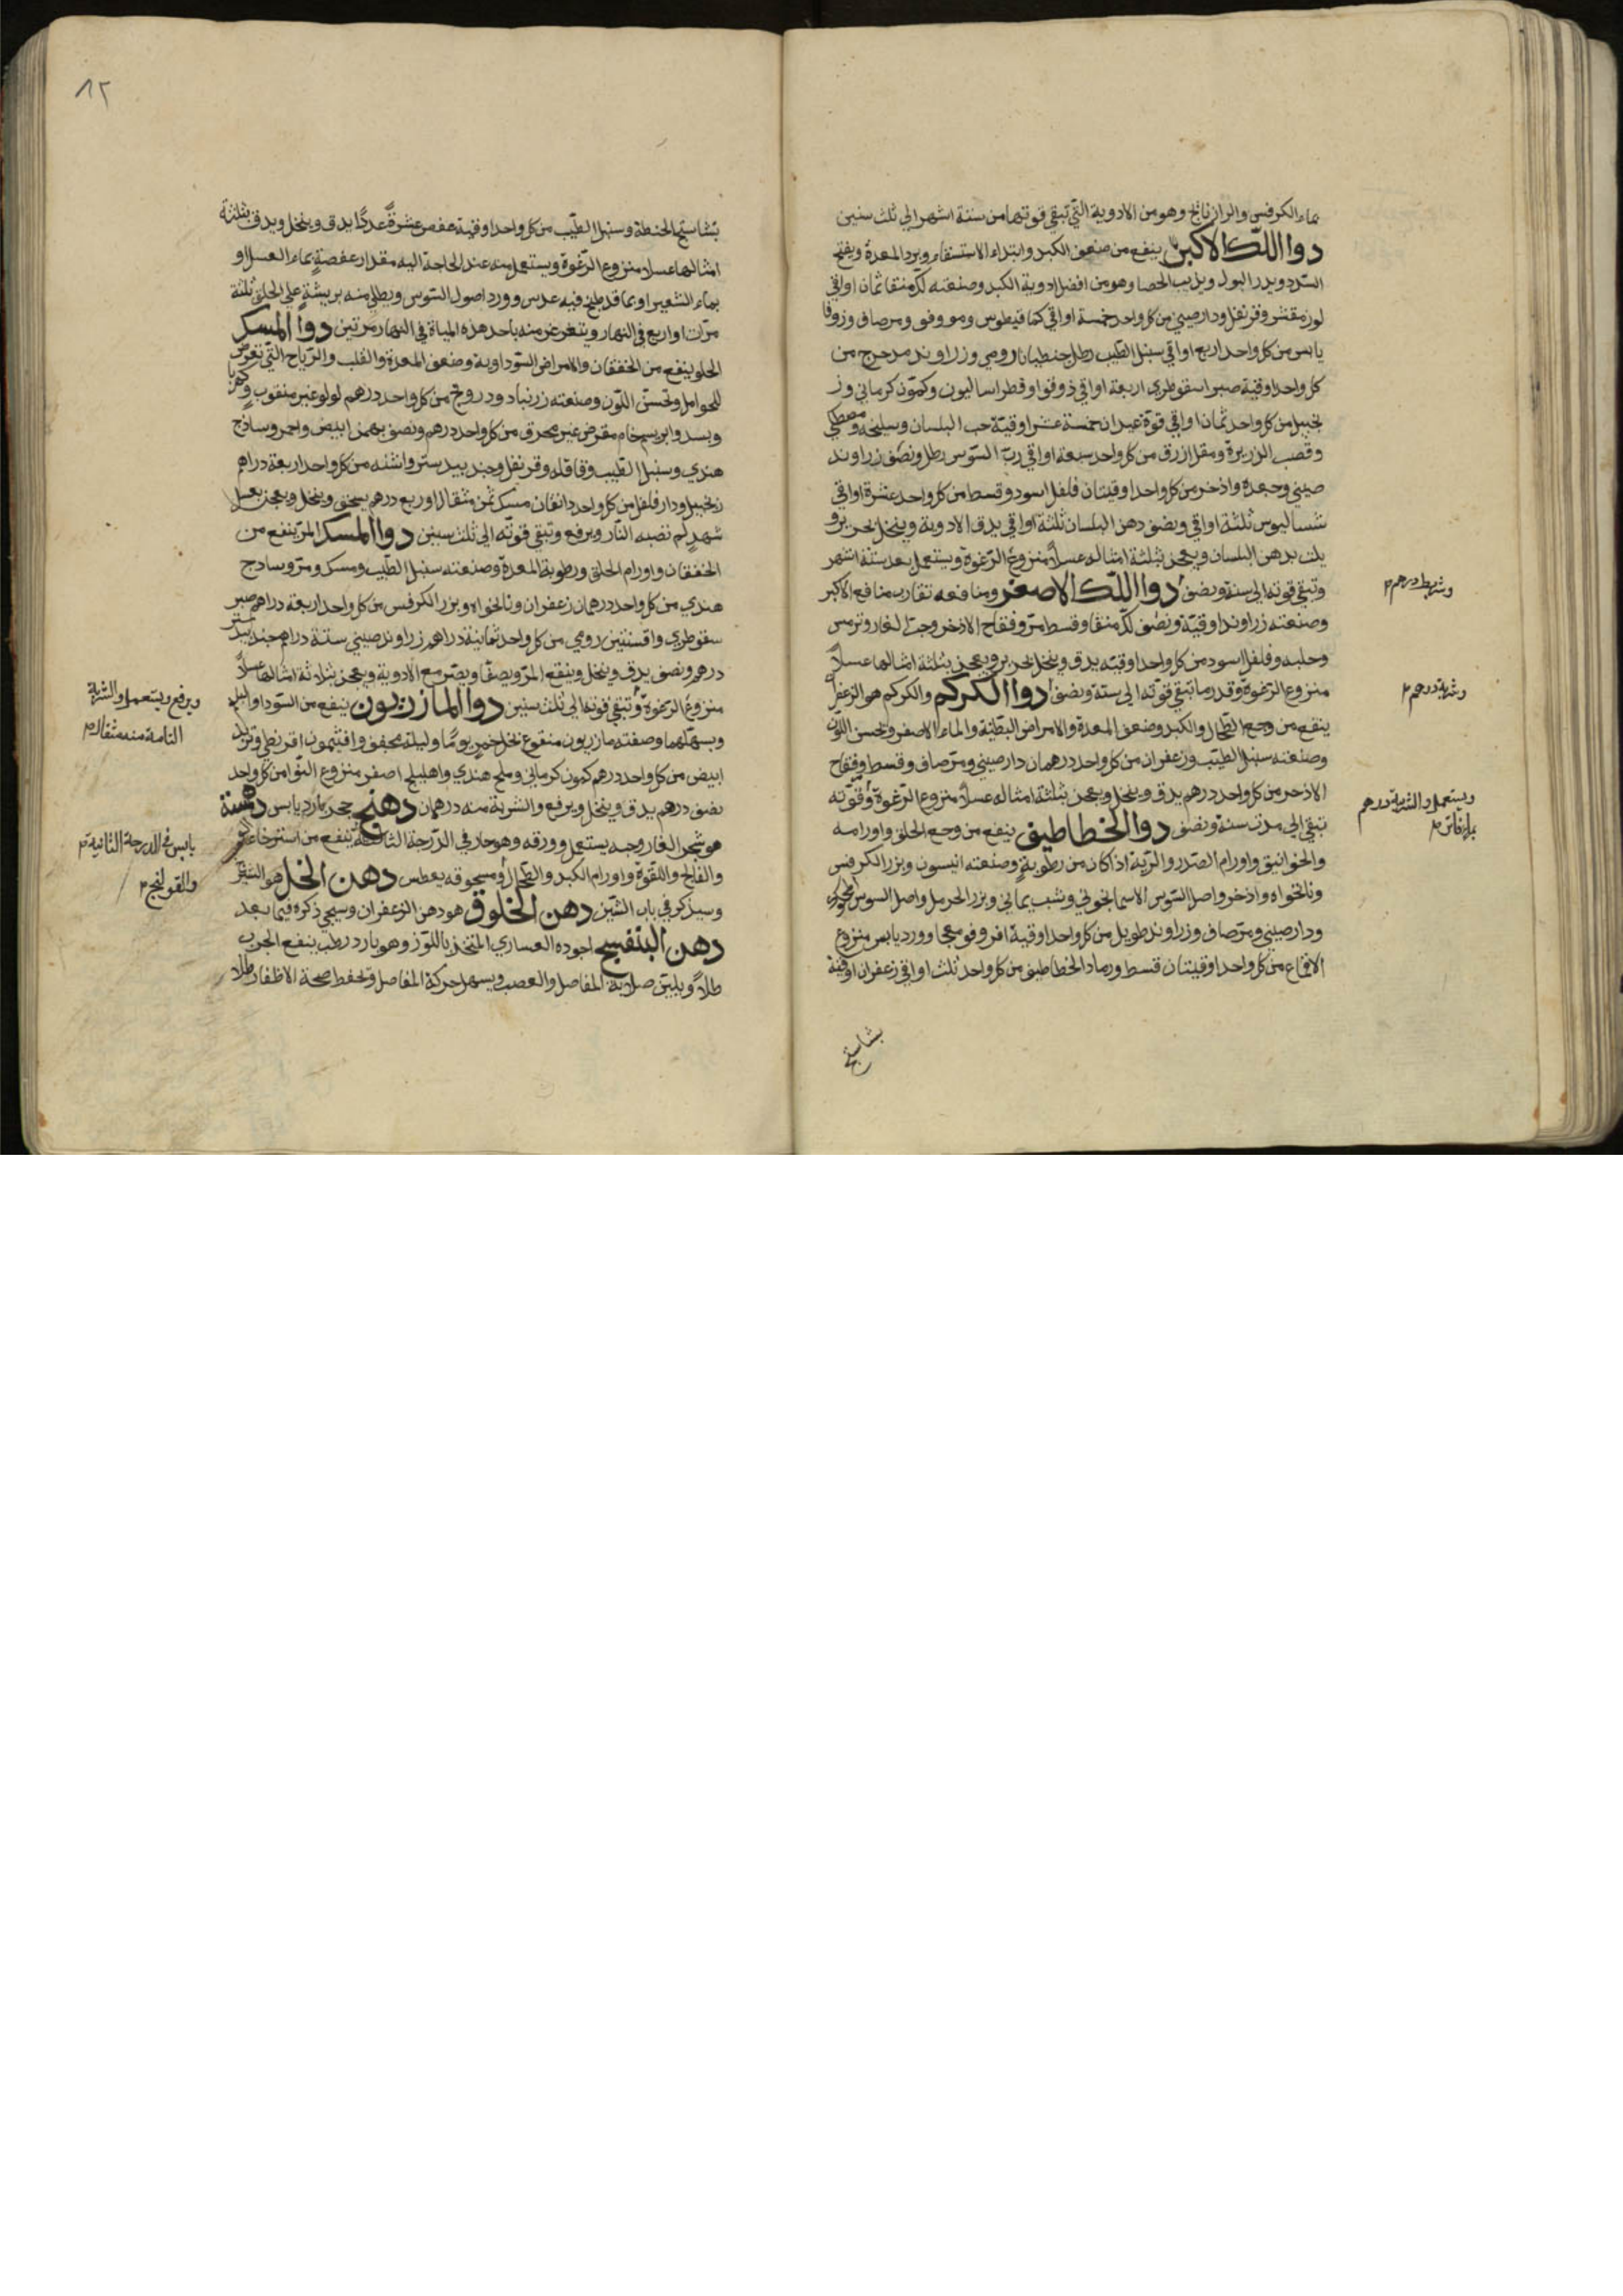 بماء الكرفس والرازيانج وهو من الادوية التي تبقي قوتها من ستة اشهر الي ثلث سنين
دوا اللك الاكبر ينفع من ضعف الكبد وابتداء الاستسقاء وبرد المعدة ويفتح
السدد ويدر البول ويذيب الحصا وهو من افضل ادوية الكبد وصنعته لك منقا ثمان اواقي
لوز مقشر وقرنفل ودارصيني من كل واحد خمسة اواقي كمافيطوس ومو وفو ومر صاف وزوفا
يابس من كل واحد اربع اواقي سنبل الطيب رطل جنطيانا رومي وزراوند مدحرج من
كل واحد اوقية صبر اسقوطري اربعة اواقي ذوقوا وفطراساليون وكمون كرماني وز
نجبيل من كل واحد ثمان اواقي قوة عيدان خمسة عشر اوقية حب البلسان وسليخه ومصطكي
وقصب الزريرة ومقل ازرق من كل واحد سبعة اواقي رب السوس رطل ونصف زراوند
صيني وجعدة واذخر من كل واحد اوقيتان فلفل اسود وقسط من كل واحد عشرة اواقي
شساليوس ثلثة اواقي ونصف دهن البلسان ثلثة اواقي يدق الادوية وينخل بحرير و
يلت بدهن البلسان ويعجن بثلثة امثاله عسلا منزوع الرغوة ويستعمل بعد ستة اشهر
وتبقي قوته الي سنة ونصف دوا اللك الاصغر ومنافعه تقارب منافع الاكبر
وشربته درهم
وصنعته زراوند اوقية ونصف لك منقا وقسط مر وفقاح الاذخر وحب الغار وترمس
وحلبه وفلفل اسود من كل واحد اوقيه يدق وينخل بحرير ويعجن بثلثة امثالها عسلا
منزوع الرغوة وقدر ما تبقي قوته الي سنة ونصف دوا الكركم والكركم هو الزعفران
وشربته درهم
ينفع من وجع الطحال والكبد وضعف المعدة والامراض البطنية والماء الاصفر ويحسن اللون
وصنعته سنبل الطيب وزعفران من كل واحد درهمان دارصيني ومر صاف وقسط وفقاح
الاذخر من كل واحد درهم يدق وينخل ويعجن بثلثة امثاله عسلا منزوع الرغوة وقوته
ويستعمل والشربة درهم
بماء فاتر
تبقي الي مدت سنة ونصف دوا الخطاطيف ينفع من وجع الحلق واورامه
والخوانيق واورام الصدر والرية اذا كان من رطوبة وصنعته انيسون وبزر الكرفس
ونانخواه واذخر واصل السوس الاسمانجوني وشب يماني وبزر الحرمل واصل السوس
ودارصيني ومر صاف وزراوند طويل من كل واحد اوقية اقروقومعجا وورد يابس منزوع
الاقماع من كل واحد اوقيتان قسط ورماد الخطاطيف من كل واحد ثلث اواقي زعفران اوقية
نشاستج
٨٢
نشاستج الحنطة وسنبل الطيب من كل واحد اوقية عفص عشرة عددا يدق وينخل ويدق بثلثة
امثالها عسلا منزوع الرغوة ويستعمل منه عند الحاجة اليه مقدار عفصة بماء العسل او
بماء الشعير او بما قد طبخ فيه عدس وورد اصول السوس ويطلي منه بريشة علي الحلق ثلثة
مرات او اربع في النهار ويتغرغر منه باحد هذه المياة في النهار مرتين دوا المسك
الحلو ينفع من الخفقان والامراض السوداوية وضعف المعدة والقلب والرياح التي تعرض
للحوامل وتحسن اللون وصنعته زرنباد ودرونج من كل واحد درهم لولو غير منقوب وكهربا
وبسد وابريسم خام مقرض غير محرق من كل واحد درهم ونصف بهمن ابيض واحمر وساذج
هندي وسنبل الطيب وقاقله وقرنفل وجندبيدستر واشنه من كل واحد اربعة دراهم
زنجبيل ودارفلفل من كل واحد دانقان مسك ثمن مثقال او ربع درهم يسحق وينخل ويعجن بعسل
شهد لم تصبه النار ويرفع وتبقي قوته الي ثلث سنين دوا المسك المر ينفع من
الخفقان واورام الحلق ورطوبة المعدة وصنعته سنبل الطيب ومسك ومر وساذج
هندي من كل واحد درهمان زعفران ونانخواه وبزر الكرفس من كل واحد اربعة دراهم صبر
سقوطري وافسنتين رومي من كل واحد ثمانية دراهم زراوند صيني ستة دراهم جندبيدستر
درهم ونصف يدق وينخل وينقع المر ويصفا ويضر مع الادوية ويعجن بثلاثة امثالها عسلا
منزوع الرغوة وتبقي قوته الي ثلث سنين دوا المازريون ينفع من السودا والبلغم
ويرفع ويستعمل والشربة
التامة منه مثقال
ويسهلهما وصفته مازريون منقوع بخل خمر يوما وليلة مجفف وافتيمون اقريطي وتربد
ابيض من كل واحد درهم كمون كرماني وملح هندي واهليلج اصفر منزوع النوا من كل واحد
نصف درهم يدق وينخل ويرفع والشربة منه درهمان دهنج حجر بارد يابس دهمست
هو شجر الغار وحبه يستعمل وورقه وهو حار في الدرجة الثالثة ينفع من استرخا
يابس في الدرجة الثانية
والفالج واللقوة واورام الكبد والطحال ومسحوقه يعطس دهن الخل هو الشيرج
والقولنج
وسيذكر في باب الشين دهن الخلوق هو دهن الزعفران وسيجي ذكره فيما بعد
دهن البنفسج اجوده العساري المتخذ باللوز وهو بارد رطب ينفع الجرب
طلا ويلين صلابة المفاصل والعصب ويسهل حركة المفاصل وتحفظ صحة الاظفار طلا